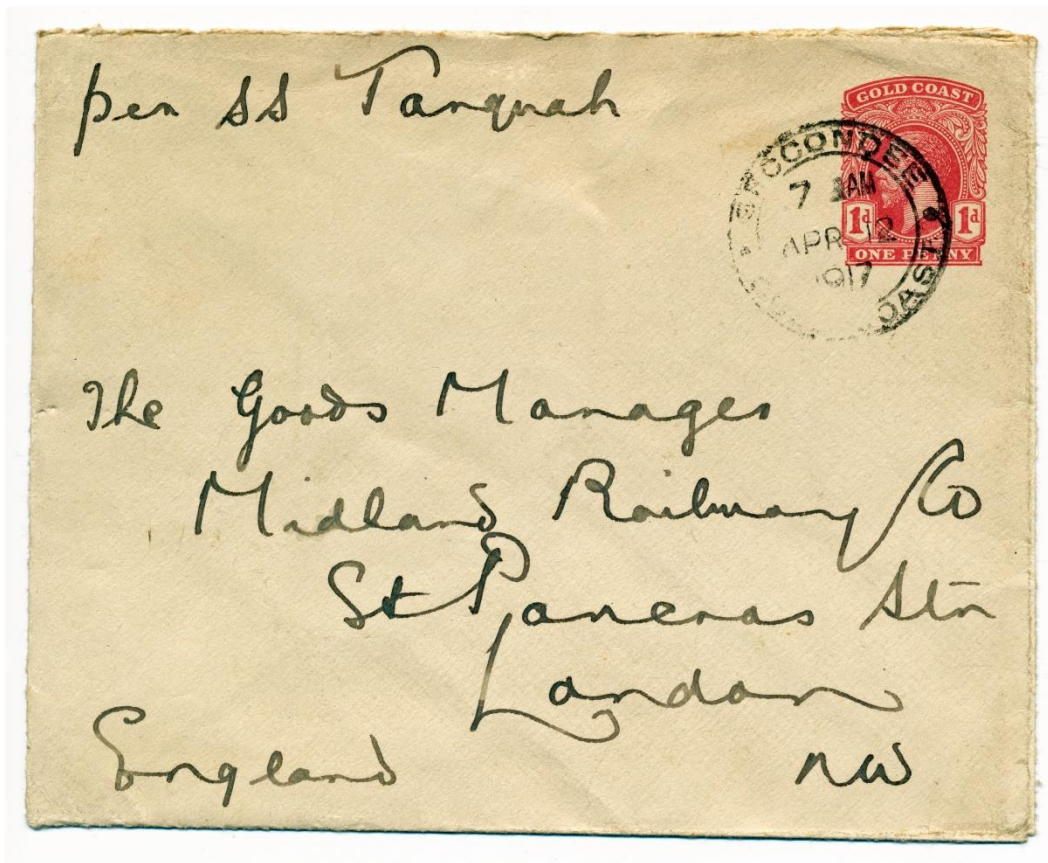 per SS Tarquah
GOLD COAST
1d 1d
ONE PENNY
SECCONDEE
7 AM
APR 12
1917
COAST
The Goods Manager
Midland Railway Co
St Pancras Stn
London
England NW